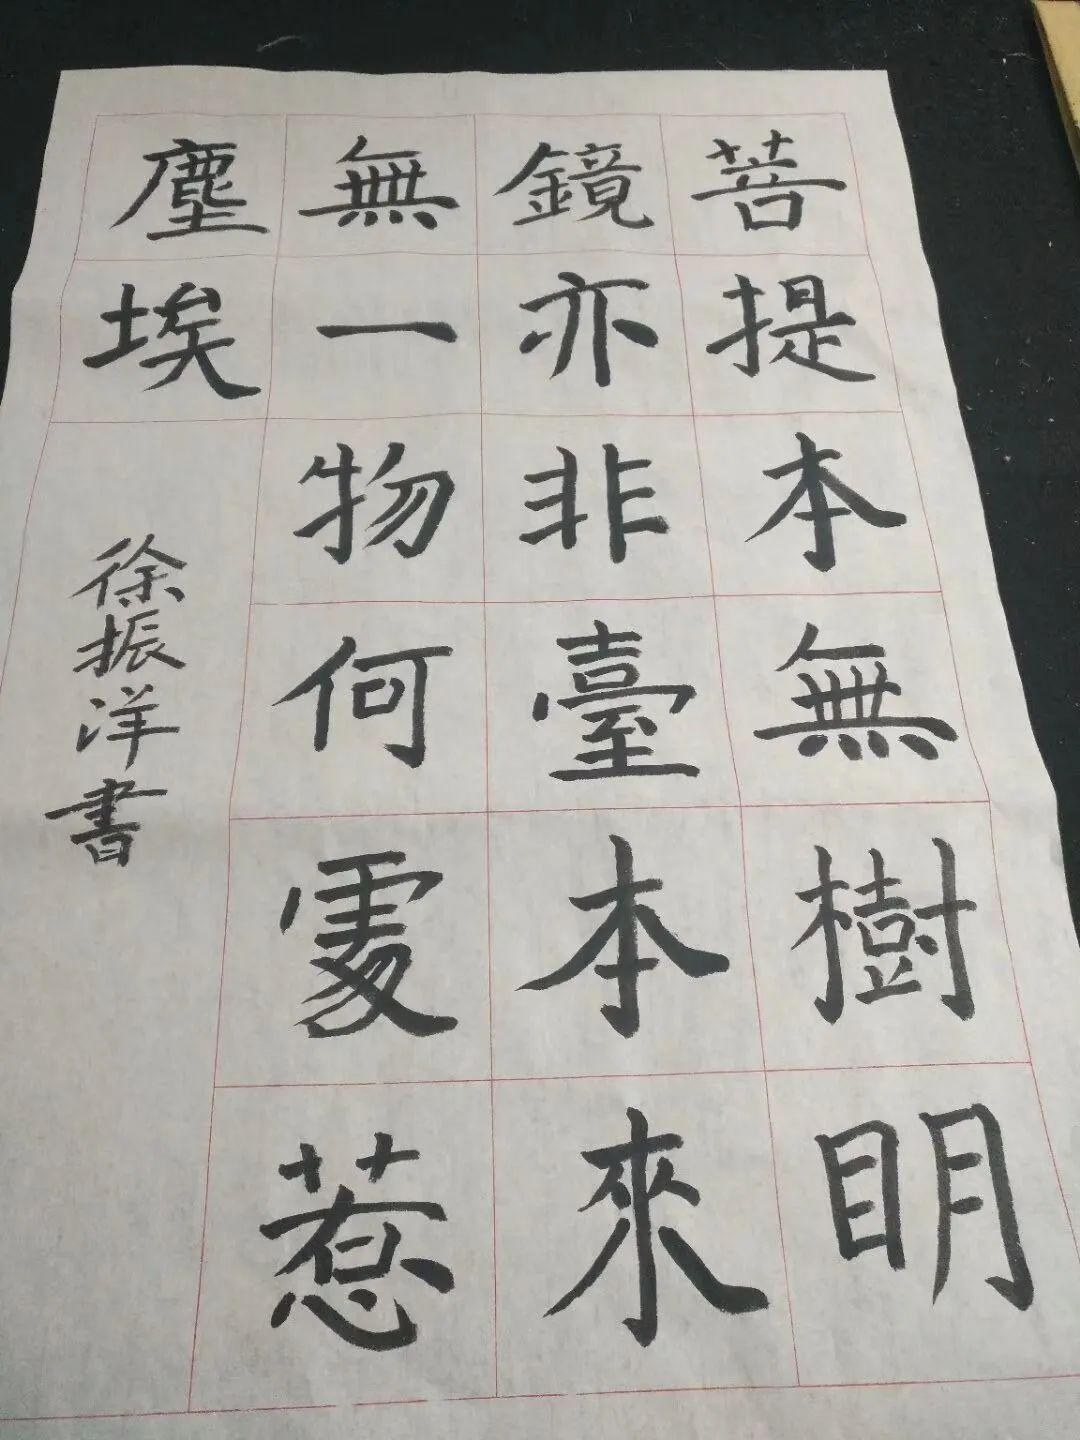 菩提本無樹明
鏡亦非臺本來
無一物何處惹
塵埃
徐振洋書